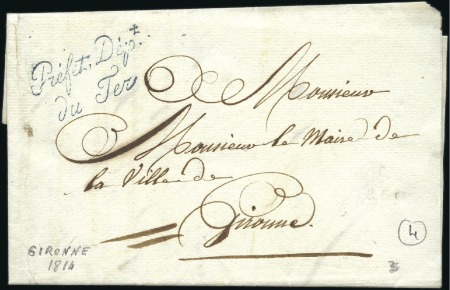 Préfet, Dépt.
du Ter
A Monsieur
Monsieur le Maire de
la Ville de
Gironne.
GIRONNE
1814
4